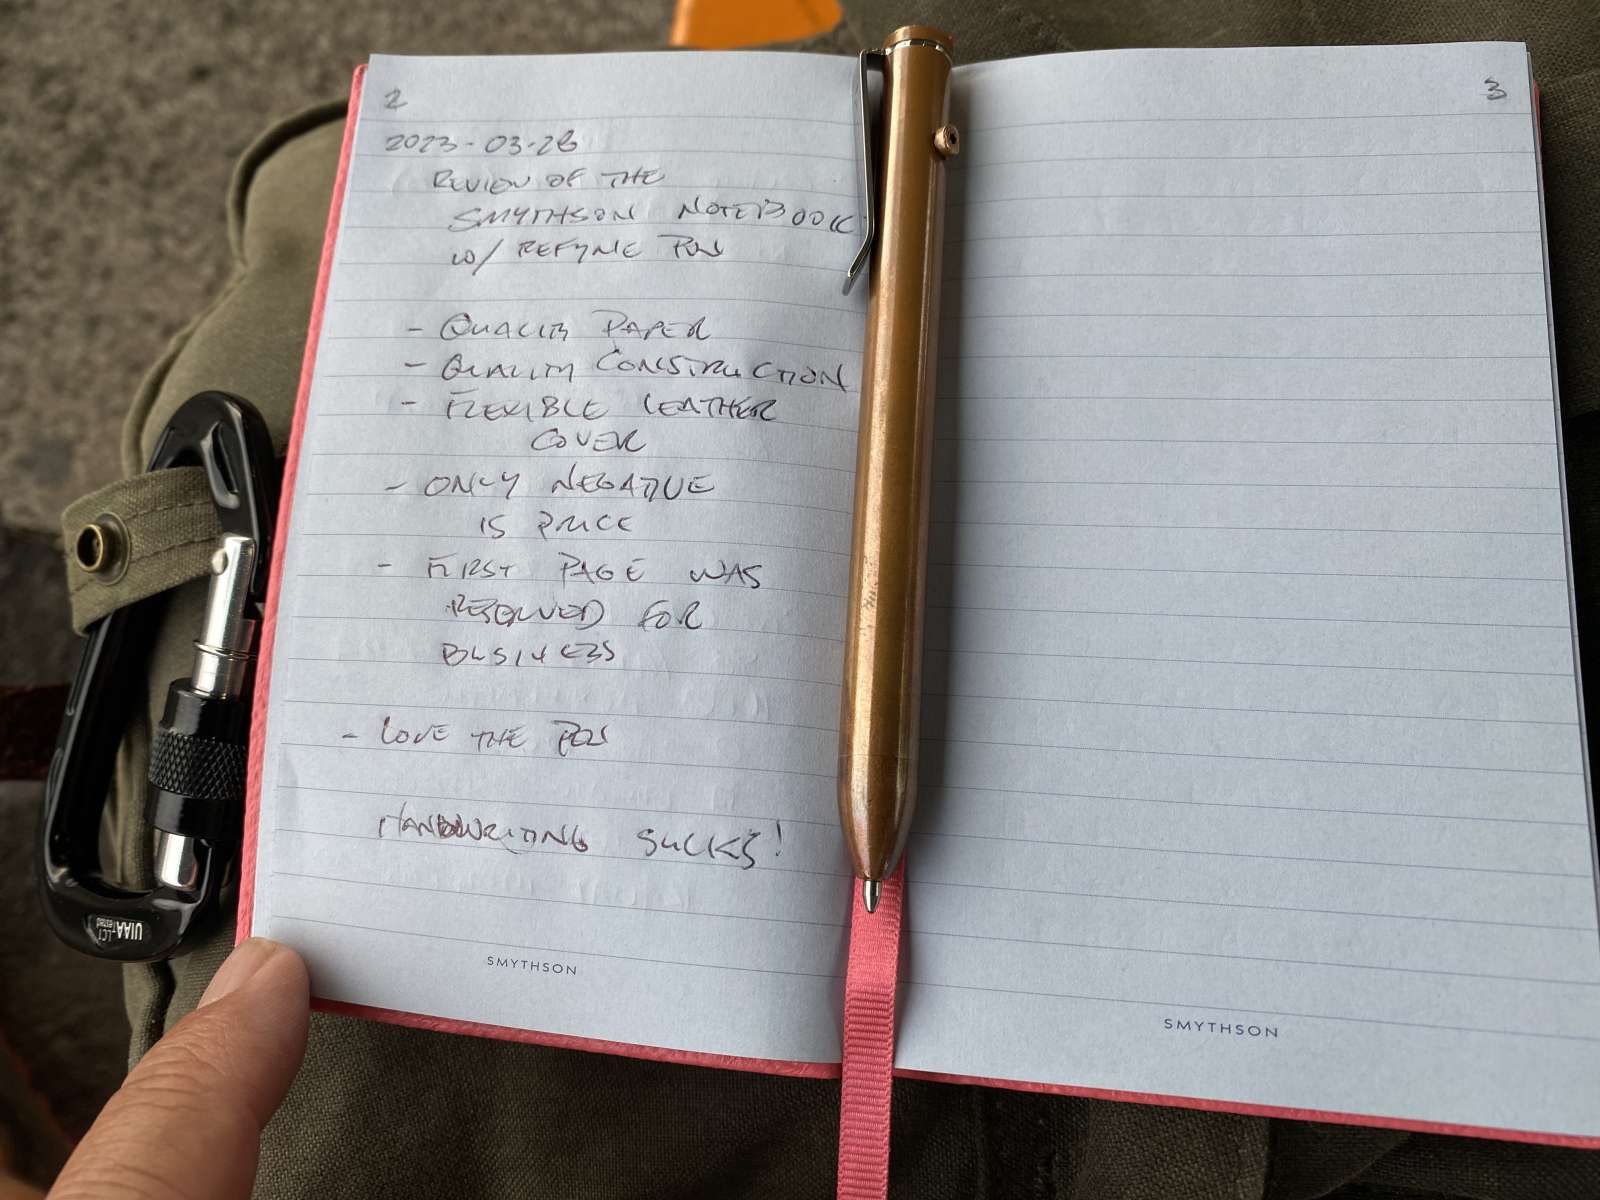 2
3
2023-03-28
REVIEW OF THE
SMYTHSON NOTEBOOK
W/ REFYNE PEN
- QUALITY PAPER
- QUALITY CONSTRUCTION
- FLEXIBLE LEATHER
COVER
- ONLY NEGATIVE
IS PRICE
- FIRST PAGE WAS
RESERVED FOR
BUSINESS
- LOVE THE PEN
HANDWRITING SUCKS!
SMYTHSON
SMYTHSON
UIAA
LCI